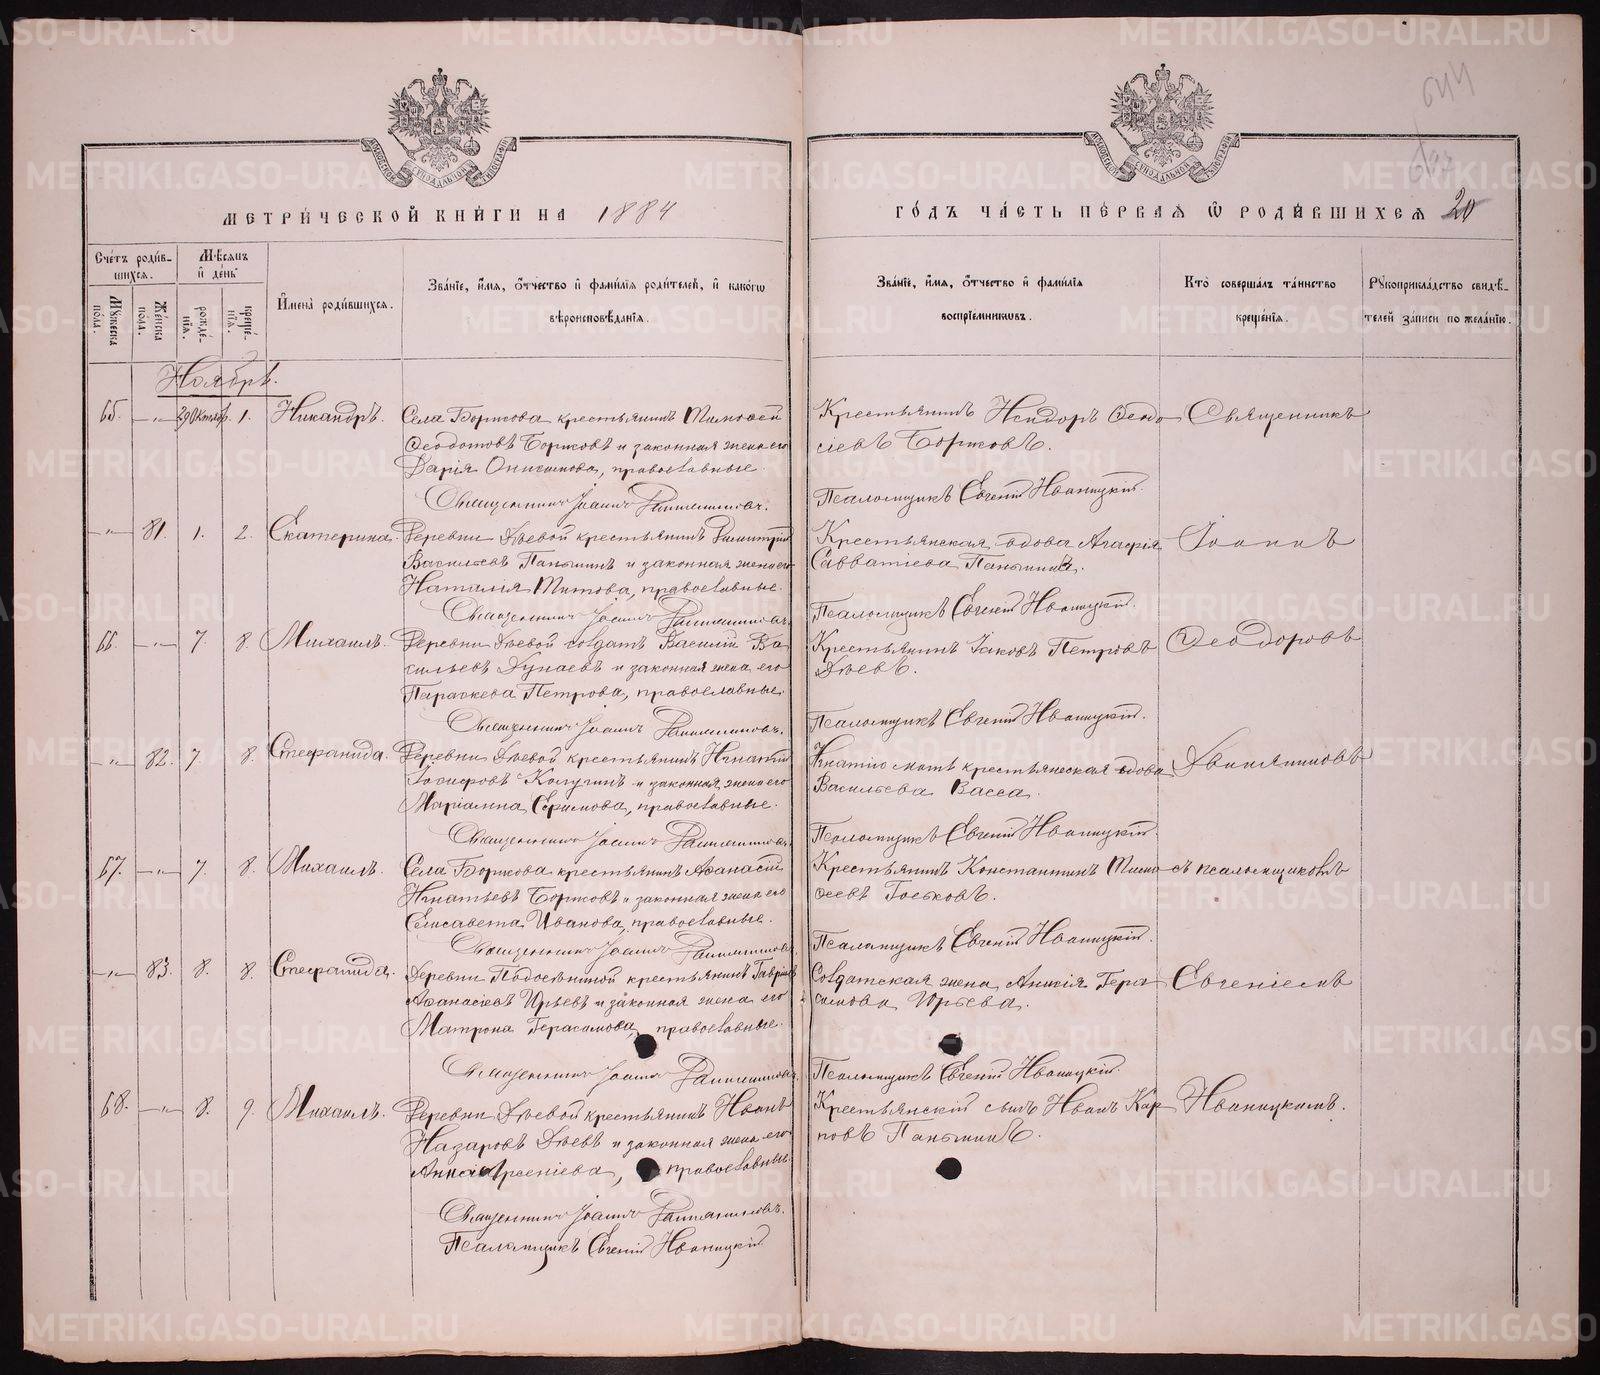 МЕТРИЧЕСКОЙ КНИГИ НА 1884
ГОДЪ ЧАСТЬ ПЕРВАЯ Ѡ РОДИВШИХСЯ 20
644
Счетъ родив-
шихся.
Мѣсяцъ
и день
Мужеска пола.
Женска пола.
рожде-
нія.
креще-
нія.
Имена родившихся.
Званіе, имя, отчество и фамилія родителей, и какогѡ
вѣроисповѣданія.
Званіе, имя, отчество и фамилія
воспріемниковъ.
Кто совершалъ таинство
крещенія.
Рукоприкладство свидѣ-
телей записи по желанію.
Ноябрь.
65. -„- 29 Октябр 1. Никандръ.
Села Борисова крестьянинъ Тимоѳей
Ѳеодотовъ Борисовъ и законная жена его
Дарія Онисимова, православные.
Священникъ Іоаннъ
Крестьянинъ Исидоръ Ѳеодо
сіевъ Борисовъ.
Псаломщикъ Евгеній Иваницкій.
Священникъ
-„- 81. 1. 2. Екатерина.
Деревни Дѣевой крестьянинъ Димитрій
Васильевъ Паньшинъ и законная жена его
Наталія Титова, православные.
Священникъ Іоаннъ
Крестьянская вдова Агафія
Савватіева Паньшина.
Псаломщикъ Евгеній Иваницкій.
Іоаннъ
66. -„- 7. 8. Михаилъ.
Деревни Дѣевой солдатъ Василій Ва
сильевъ Дунаевъ и законная жена его
Параскева Петрова, православные.
Священникъ Іоаннъ
Крестьянинъ Іаковъ Петровъ
Дѣевъ.
Псаломщикъ Евгеній Иваницкій.
Ѳеодоровъ
-„- 82. 7. 8. Стефанида.
Деревни Дѣевой крестьянинъ Игнатій
Іосифовъ и законная жена его
Маріанна Ефимова, православные.
Священникъ Іоаннъ
Игнатію мать крестьянская вдова
Васильева Васса.
Псаломщикъ Евгеній Иваницкій.
67. -„- 7. 8. Михаилъ.
Села Борисова крестьянинъ Аѳанасій
Игнатьевъ Борисовъ и законная жена его
Елисавета Иванова, православные.
Священникъ Іоаннъ
Крестьянинъ Константинъ Тимо
ѳеевъ Гостковъ.
Псаломщикъ Евгеній Иваницкій.
съ псаломщикомъ
-„- 83. 8. 8. Стефанида.
Деревни крестьянинъ Гавріилъ
Аѳанасіевъ Юрьевъ и законная жена его
Матрона Герасимова, православные.
Священникъ Іоаннъ
Солдатская жена Анисія Гера
симова Юрьева.
Псаломщикъ Евгеній Иваницкій.
Евгеніемъ
68. -„- 8. 9. Михаилъ.
Деревни Дѣевой крестьянинъ Иванъ
Назаровъ Дѣевъ и законная жена его
Анна Арсеніева, православные.
Священникъ Іоаннъ
Псаломщикъ Евгеній Иваницкій
Крестьянскій сынъ Иванъ Кар
повъ Паньшинъ.
Иваницкимъ.
METRIKI.GASO-URAL.RU